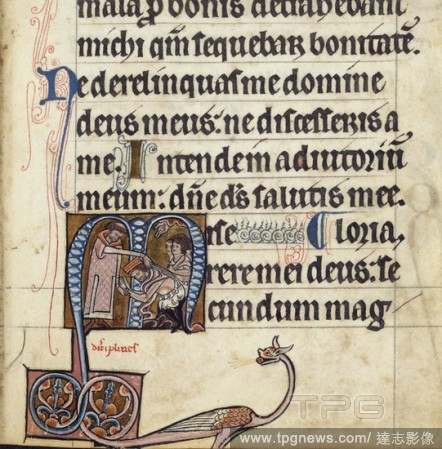 mala p bonis detrahebant
michi qm sequebar bonitatē.
Ne derelinquas me domine
deus meus: ne discesseris a
me. Intende in adiutoriū
meum: dne ds salutis mee.
Mrse Gloria,
rere mei deus: se
cundum mag
disciplines
TPG
www.tpgnews.com/ 達志影像